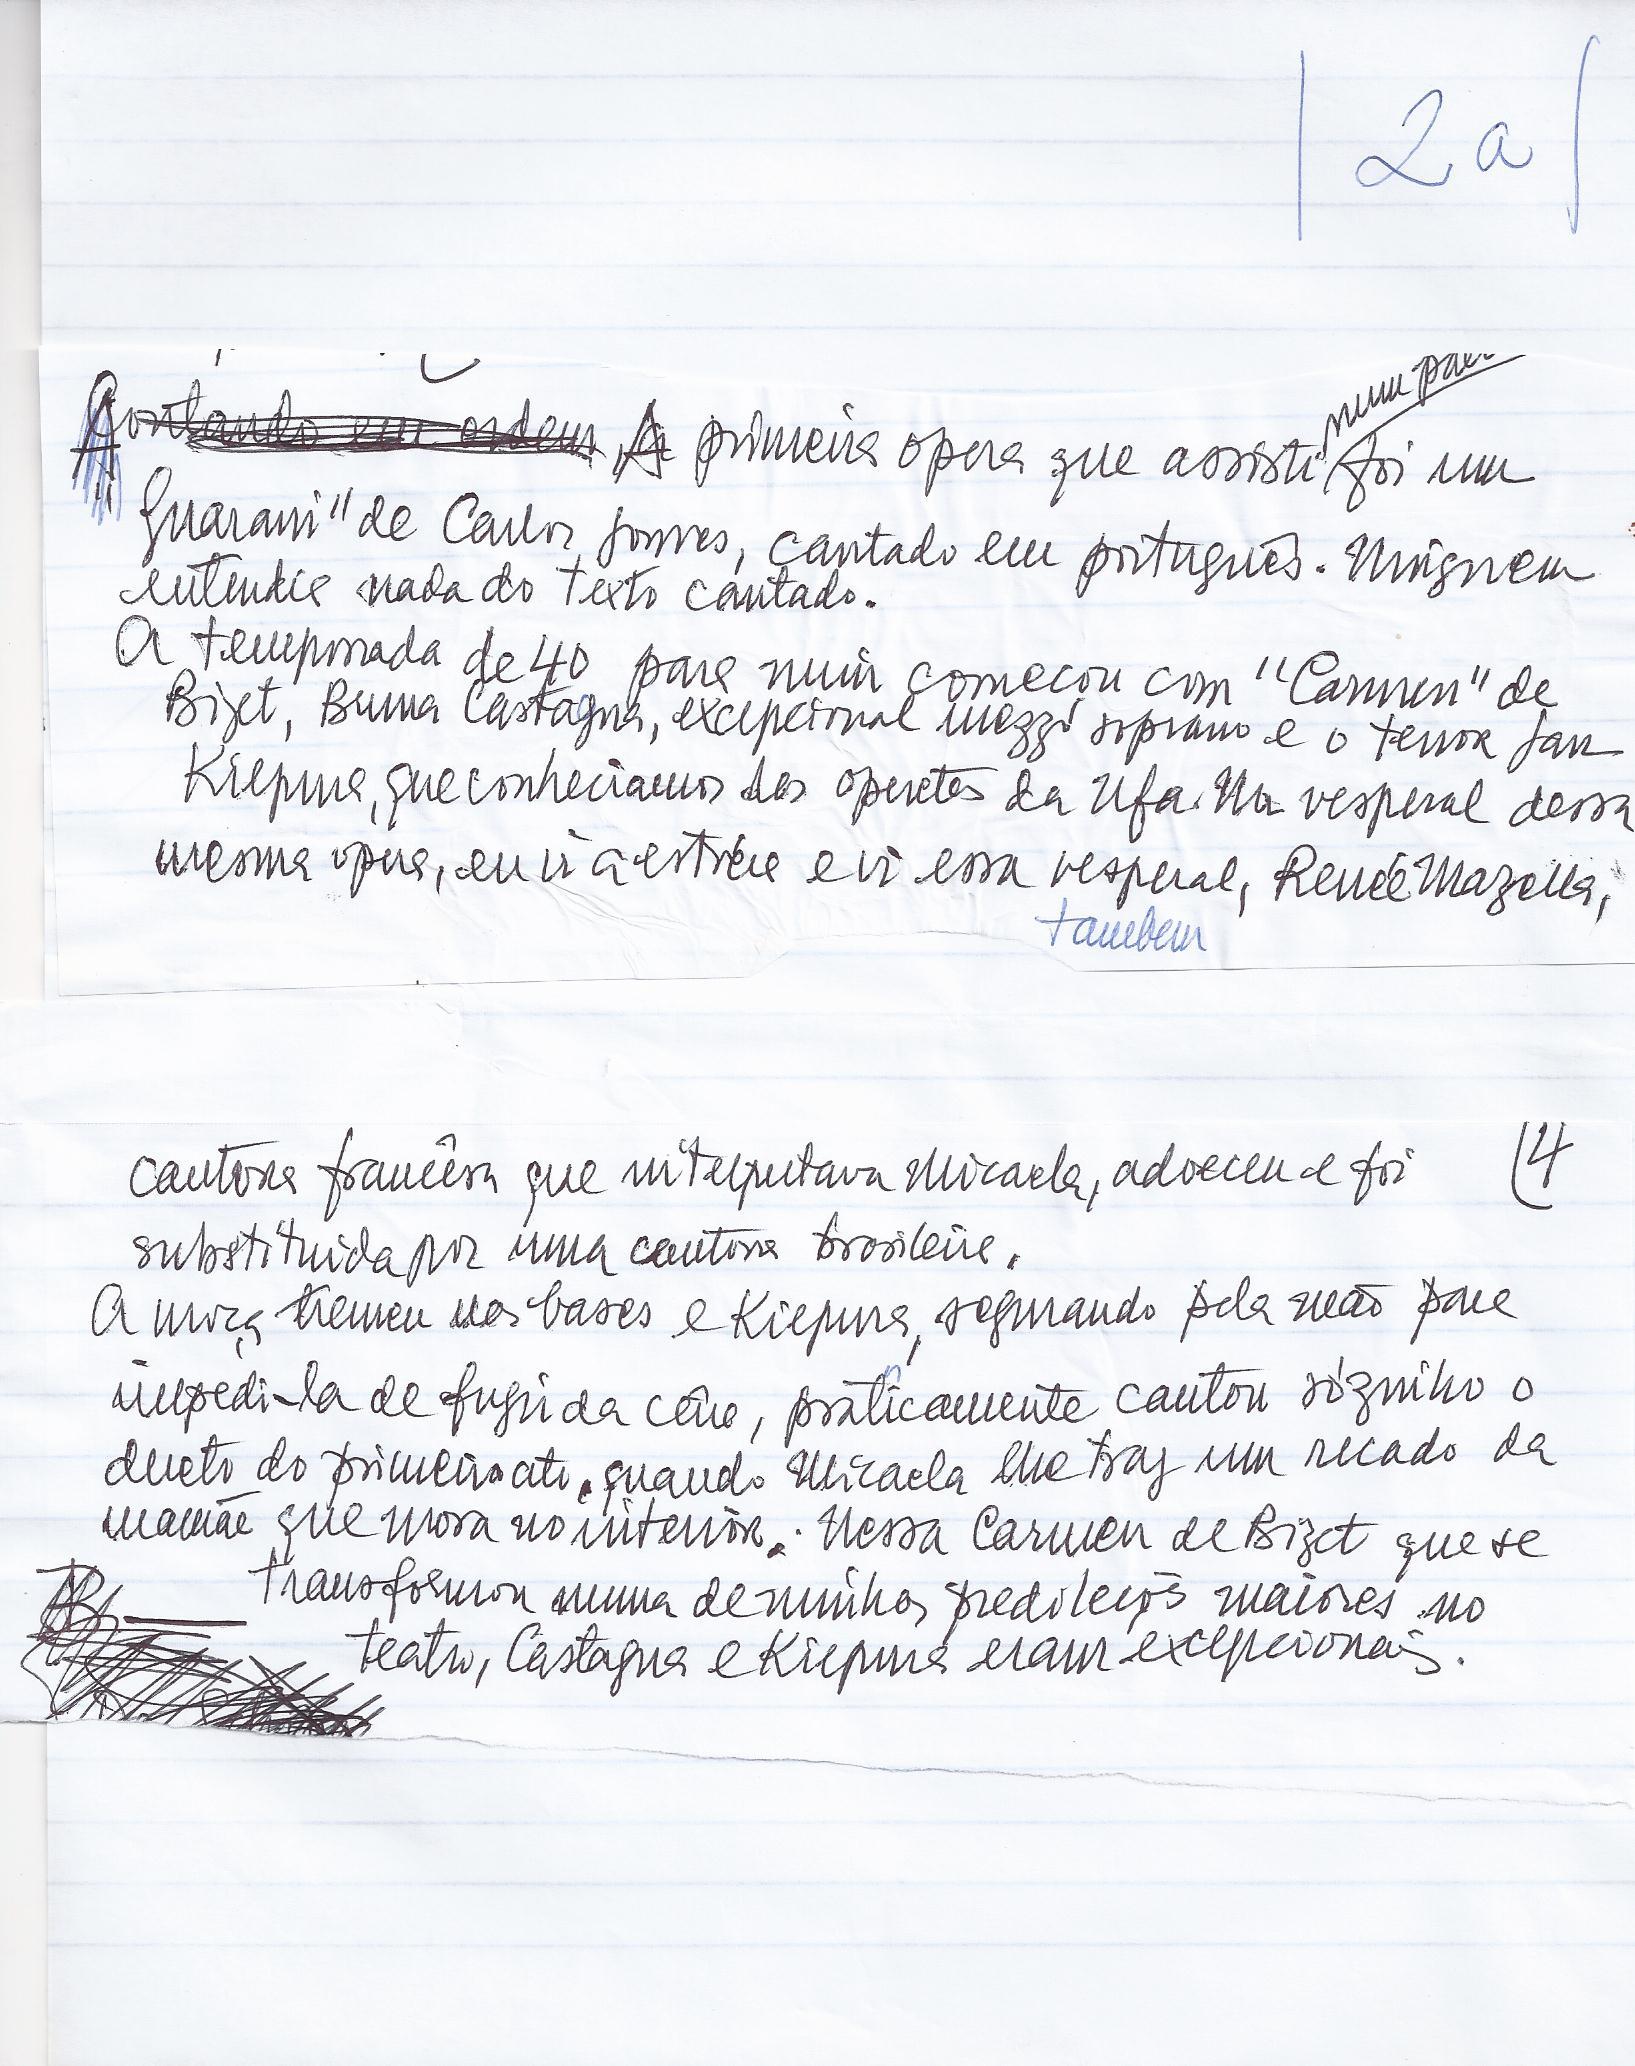 2a
num
A primeira opera que assisti foi um
"Guarani" de Carlos Gomes, cantado em português. Ninguem
entendia nada do texto cantado.
A temporada de 40 para mim começou com "Carmen" de
Bizet, Bruna Castagna, excepcional mezzo soprano e o tenor Jan
Kiepura, que conheciamos das operetas da Ufa. Na vesperal dessa
mesma opera, eu vi a estréia e vi essa vesperal, Renée Mazella,
tambem
cantora francêsa que interpretava Micaela, adoeceu e foi
14
substituida por uma cantora brasileira.
A moça tremeu nas bases e Kiepura, segurando pela mão para
impedi-la de fugir da cêna, práticamente cantou sózinho o
dueto do primeiro ato, quando Micaela lhe traz um recado da
mamãe que mora no interior. Nessa Carmen de Bizet que se
transformou numa de minhas predileçoes maiores no
teatro, Castagna e Kiepura eram excepcionais.